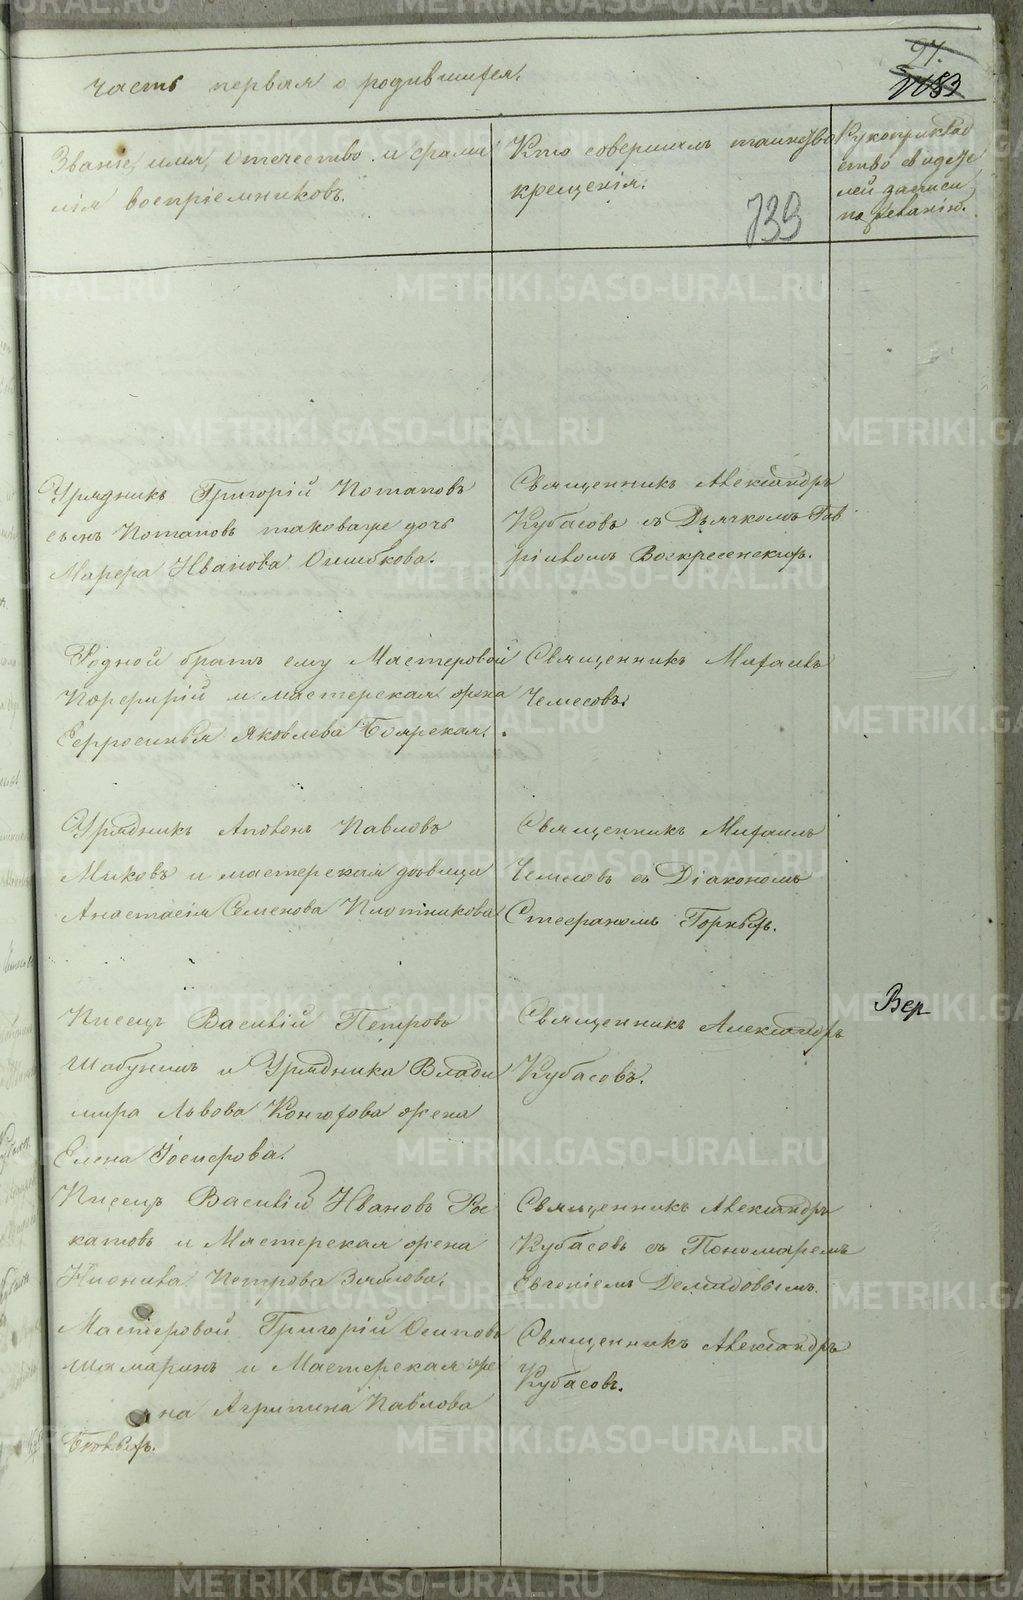 97.
1183
Часть первая о родившихся.
Званіе, имя, отечество и фами
лія воспріемниковъ.
Кто совершалъ таинство
крещенія.
739
Рукоприклад
ство свидѣте
лей записи
по желанію.
Урядникъ Григорій Потаповъ
сынъ Потаповъ таковаже дочь
Марѳа Иванова Ошибкова.
Священникъ Александръ
Кубасовъ съ Дьячкомъ Гав
ріиломъ Воскресенскимъ.
Родной братъ ему Мастеровой
Порфирій и мастерская жена
Ефросинья Яковлева Боярская.
Священникъ Михаилъ
Чемесовъ.
Урядникъ Антонъ Павловъ
Мыковъ и мастерская дѣвица
Анастасія Семенова Плотникова
Священникъ Михаилъ
Чемесовъ съ Діакономъ
Стефаномъ Горныхъ.
Писецъ Василій Петровъ
Шабунинъ и Урядника Влади
мира Львова жена
Елена Іосифова.
Священникъ Александръ
Кубасовъ.
Вер
Писецъ Василій Ивановъ Рос
катовъ и Мастерская жена
Петрова Зяблова.
Священникъ Александръ
Кубасовъ съ Пономаремъ
Евгеніемъ Демидовымъ.
Мастеровой Григорій Осиповъ
Шамаринъ и Мастерская же
на Агрипина Павлова
Священникъ Александръ
Кубасовъ.
METRIKI.GASO-URAL.RU